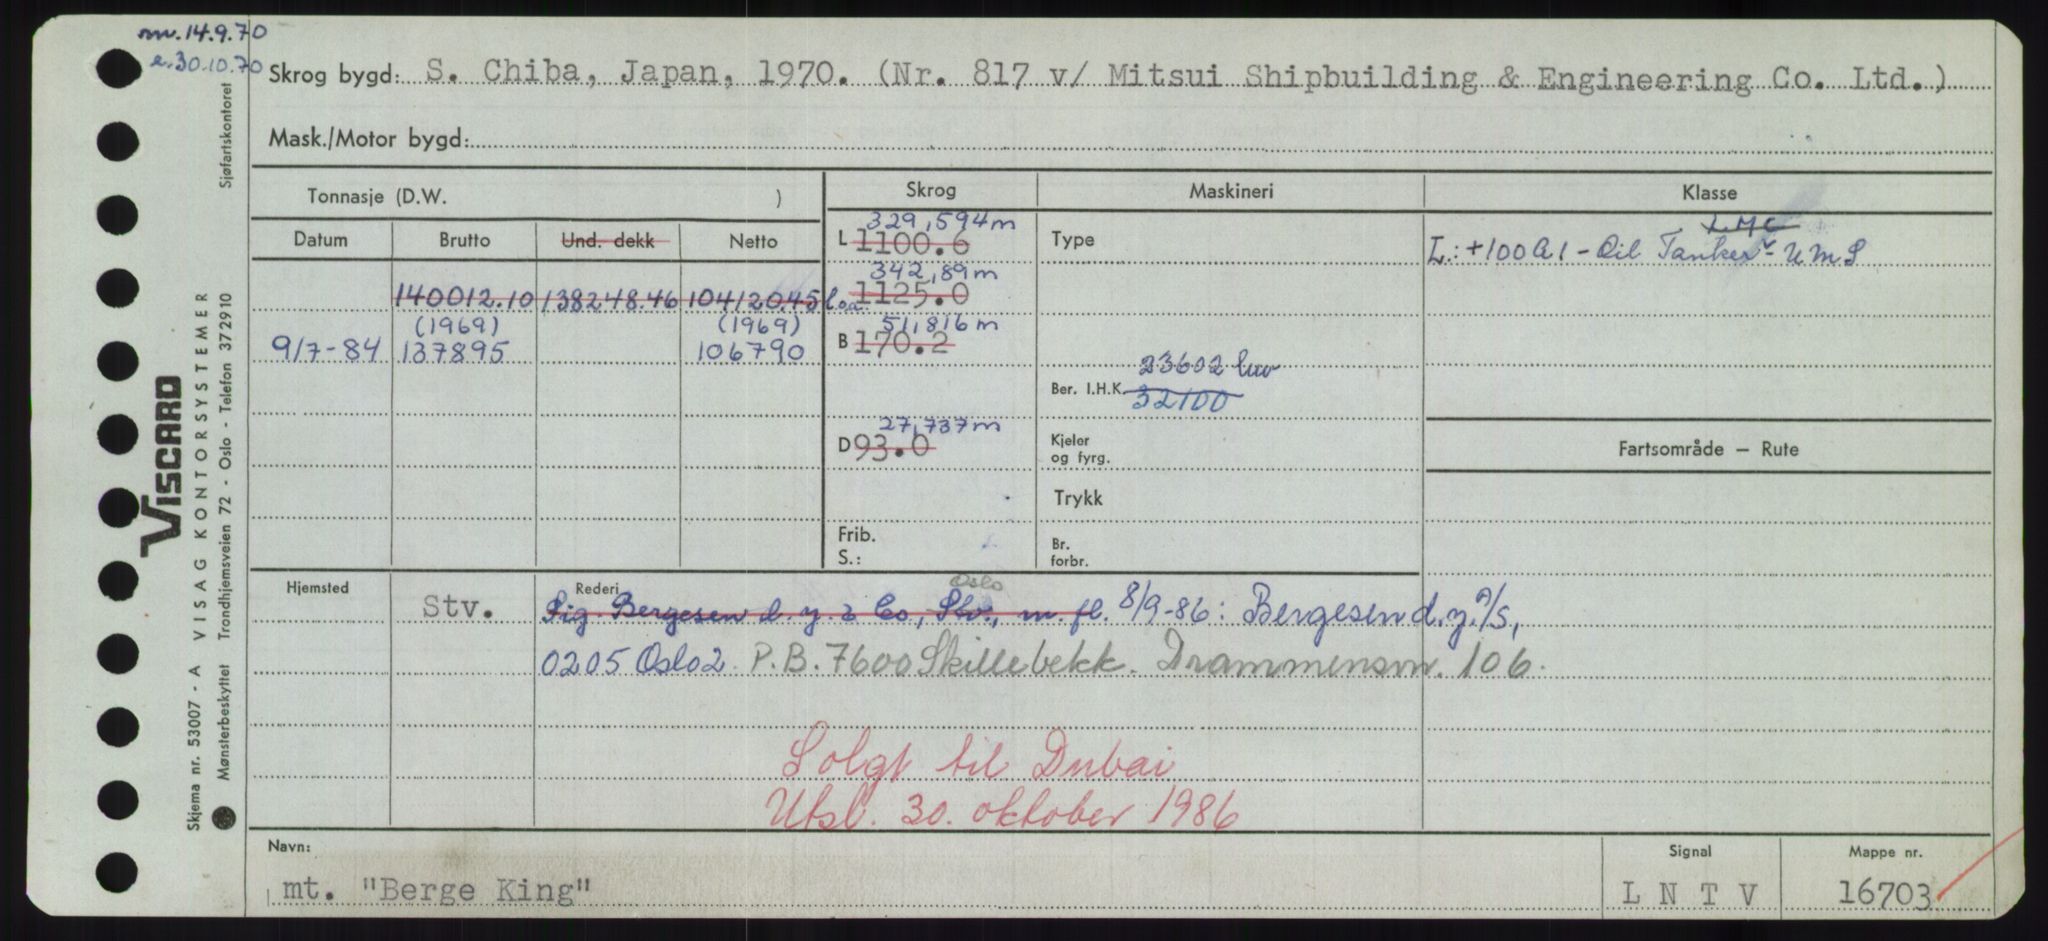 m. 14.9.70
e. 30.10.70
Skrog bygd: S. Chiba, Japan, 1970. (Nr. 817 v/ Mitsui Shipbuilding & Engineering Co. Ltd.)
Mask./Motor bygd:
Tonnasje (D.W. )
Skrog
Maskineri
Klasse
Datum Brutto Und. dekk Netto
329,594 m
L 1100.6
Type
LMC
L: +100A1 - Oil Tanker - UMS
342,89 m
140012.10 138248.46 104120.45 loa 1125.0
(1969) (1969) 51,816 m
9/7-84 137895 106790 B 170.2
23602 kw
Ber. I.H.K. 32100
27,737 m
D 93.0
Kjeler
og fyrg.
Fartsområde – Rute
Trykk
Frib.
S.:
Br.
forbr.
Hjemsted
Rederi
Oslo
Stv. Sig. Bergesen d.y. & Co, Stv., m. fl. 8/9-86: Bergesen d.y. A/S,
0205 Oslo 2. P.B. 7600 Skillebekk. Drammensvn. 106.
Solgt til Dubai
Utsl. 30. oktober 1986
Navn:
Signal
Mappe nr.
mt. "Berge King"
L N T V
16703
Skjema nr. 53007 - A VISAG KONTORSYSTEMER
VISCARD
Mønsterbeskyttet Trondhjemsveien 72 - Oslo - Telefon 372910
Sjøfartskontoret